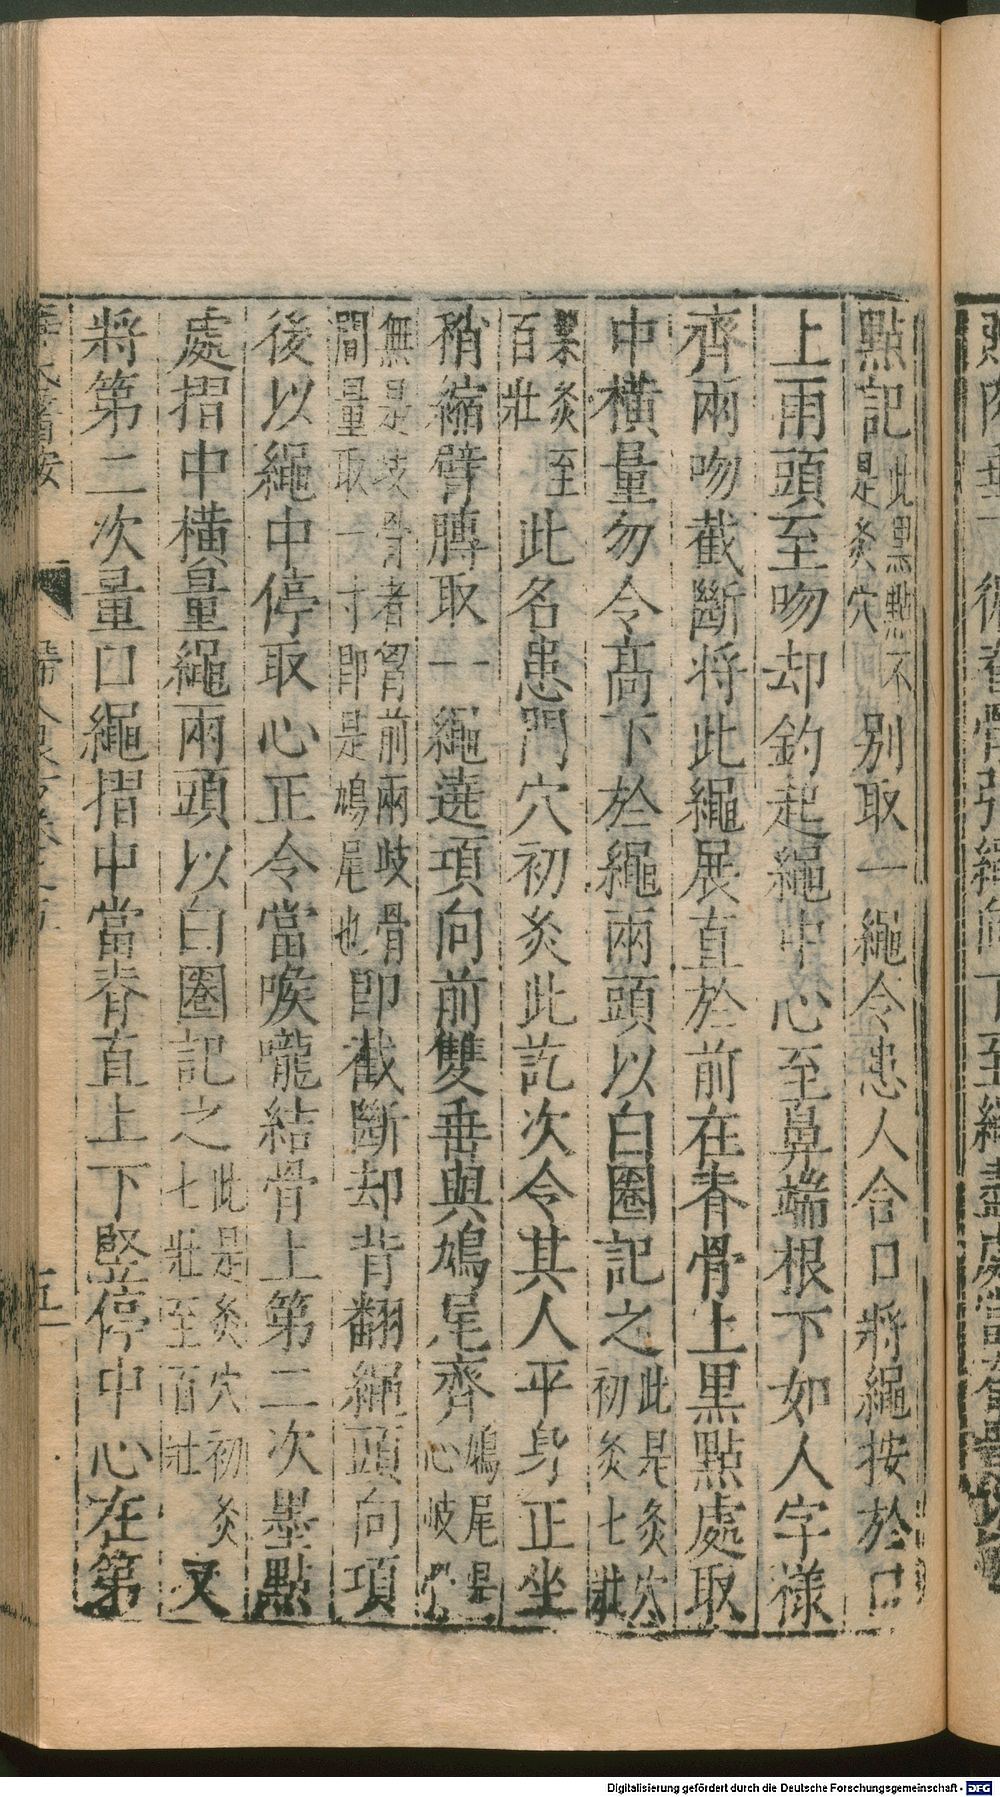 點記此黑點不是灸穴別取一繩令患人合口將繩按於口
上兩頭至吻却鈎起繩中心至鼻端根下如人字樣
齊兩吻截斷將此繩展直於前在脊骨上黑點處取
中橫量勿令高下於繩兩頭以白圈記之此是灸穴初灸七壯
累灸至百壯此名患門穴初灸此訖次令其人平身正坐
稍縮臂膊取一繩遶項向前雙垂與鳩尾齊鳩尾是心岐骨
無是歧骨者胷前兩歧骨間量取一寸即是鳩尾也即截斷却背翻繩頭向項
後以繩中停取心正令當喉嚨結骨上第二次墨點
處摺中橫量繩兩頭以白圈記之此是灸穴初灸七壯至百壯又
將第二次量口繩摺中當脊直上下竪停中心在第
五
Digitalisierung gefördert durch die Deutsche Forschungsgemeinschaft - DFG